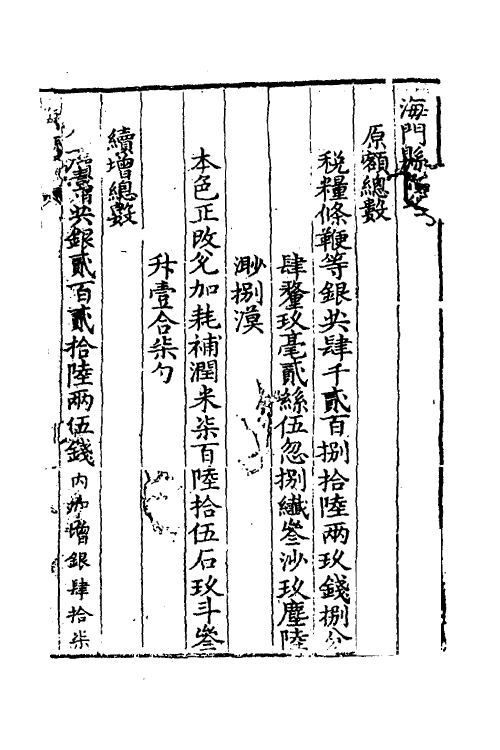 海門縣
原額總數
稅糧條鞭等銀共肆千貳百捌拾陸兩玖錢捌分
肆釐玖毫貳絲伍忽捌纖叄沙玖塵陸
渺捌漠
本色正改兌加耗補潤米柒百陸拾伍石玖斗叄
升壹合柒勺
續增總數
共銀貳百貳拾陸兩伍錢內加增銀肆拾柒